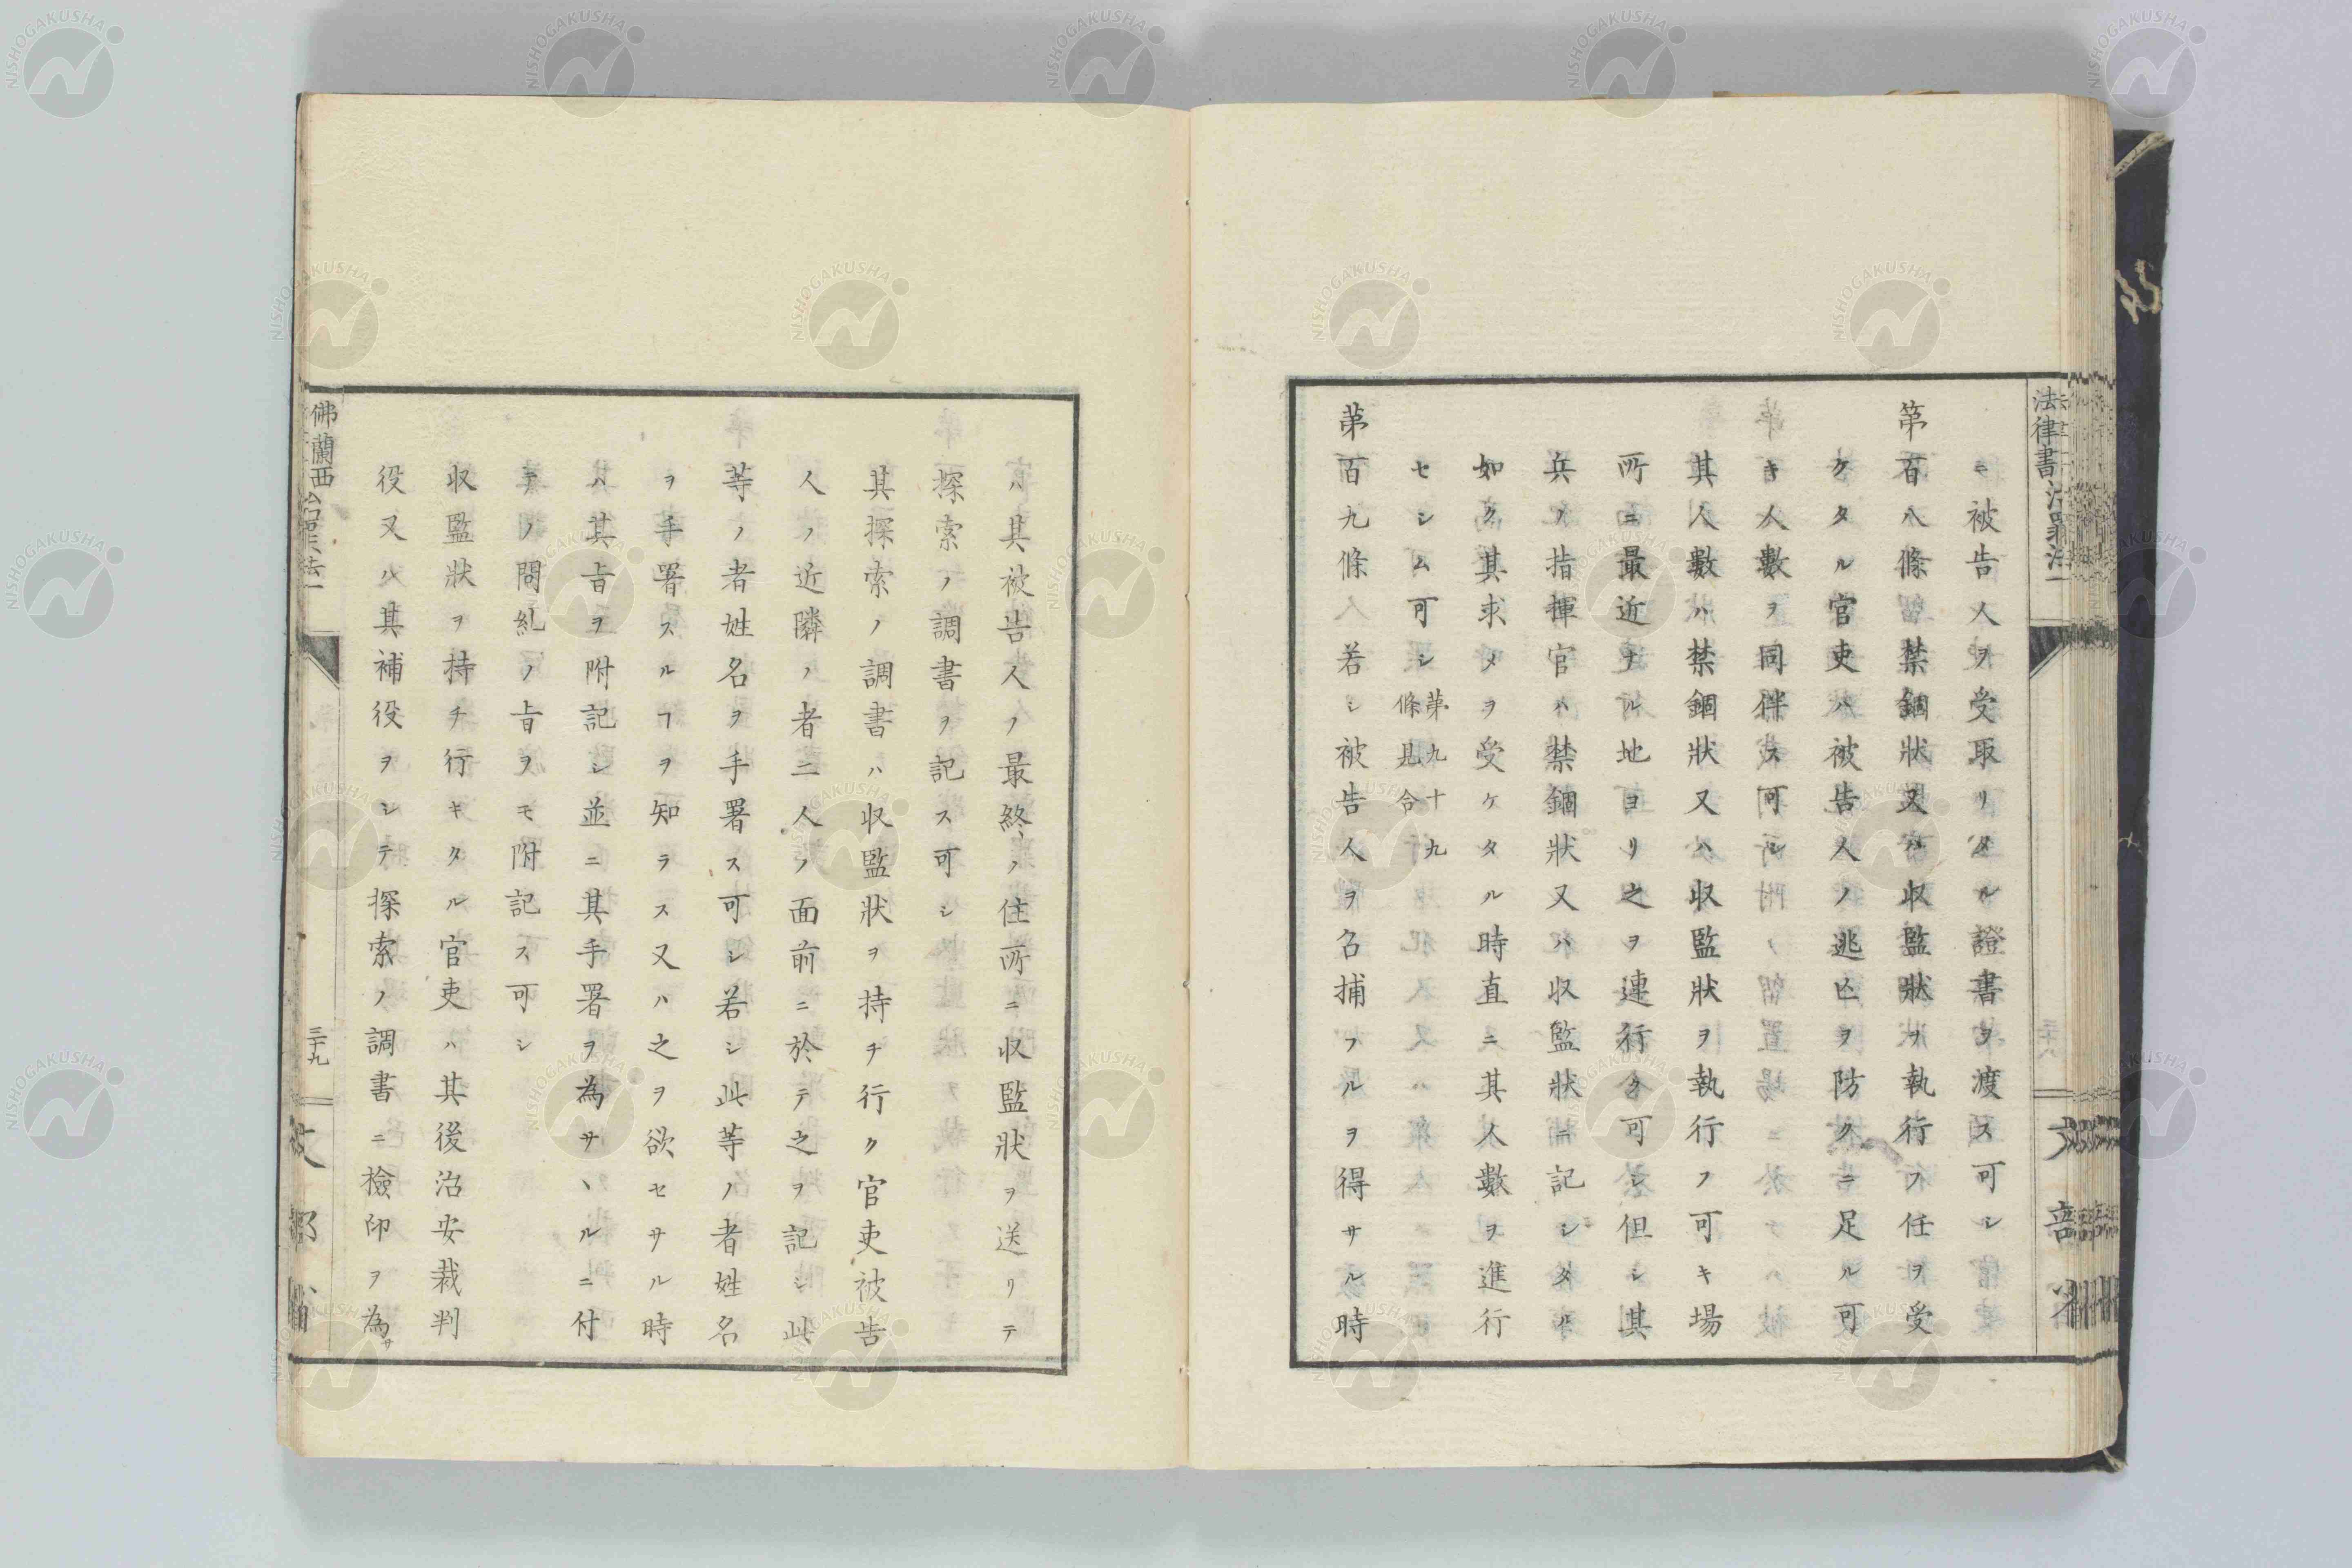 ニ被告人ヲ受取リタル證書ヲ渡ス可シ
第百八條禁錮狀又ハ収監狀ヲ執行フ任ヲ受
ケタル官吏ハ被告人ノ逃亡ヲ防クニ足ル可
キ人數ヲ同伴ス可シ
其人數ハ禁錮狀又ハ収監狀ヲ執行フ可キ場
所ニ最近ナル地ヨリ之ヲ連行ク可シ但シ其
兵ノ指揮官ハ禁錮狀又ハ収監狀ニ記シタル
如ク其求メヲ受ケタル時直ニ其人數ヲ進行
セシム可シ第九十九條見合
第百九條若シ被告人ヲ召捕フルヲ得サル時
ハ其被告人ノ最終ノ住所ニ収監狀ヲ送リテ
探索ノ調書ヲ記ス可シ
其探索ノ調書ハ収監狀ヲ持チ行ク官吏被告
人ノ近隣ノ者二人ノ面前ニ於テ之ヲ記シ此
等ノ者姓名ヲ手署ス可シ若シ此等ノ者姓名
ヲ手署スルヿヲ知ラス又ハ之ヲ欲セサル時
ハ其旨ヲ附記シ並ニ其手署ヲ為サヽルニ付
テノ問糺ノ旨ヲモ附記ス可シ
収監狀ヲ持チ行キタル官吏ハ其後治安裁判
役又ハ其補役ヲシテ探索ノ調書ニ檢印ヲ為サ
佛蘭西治罪法一
三十九
NISHOGAKUSHA